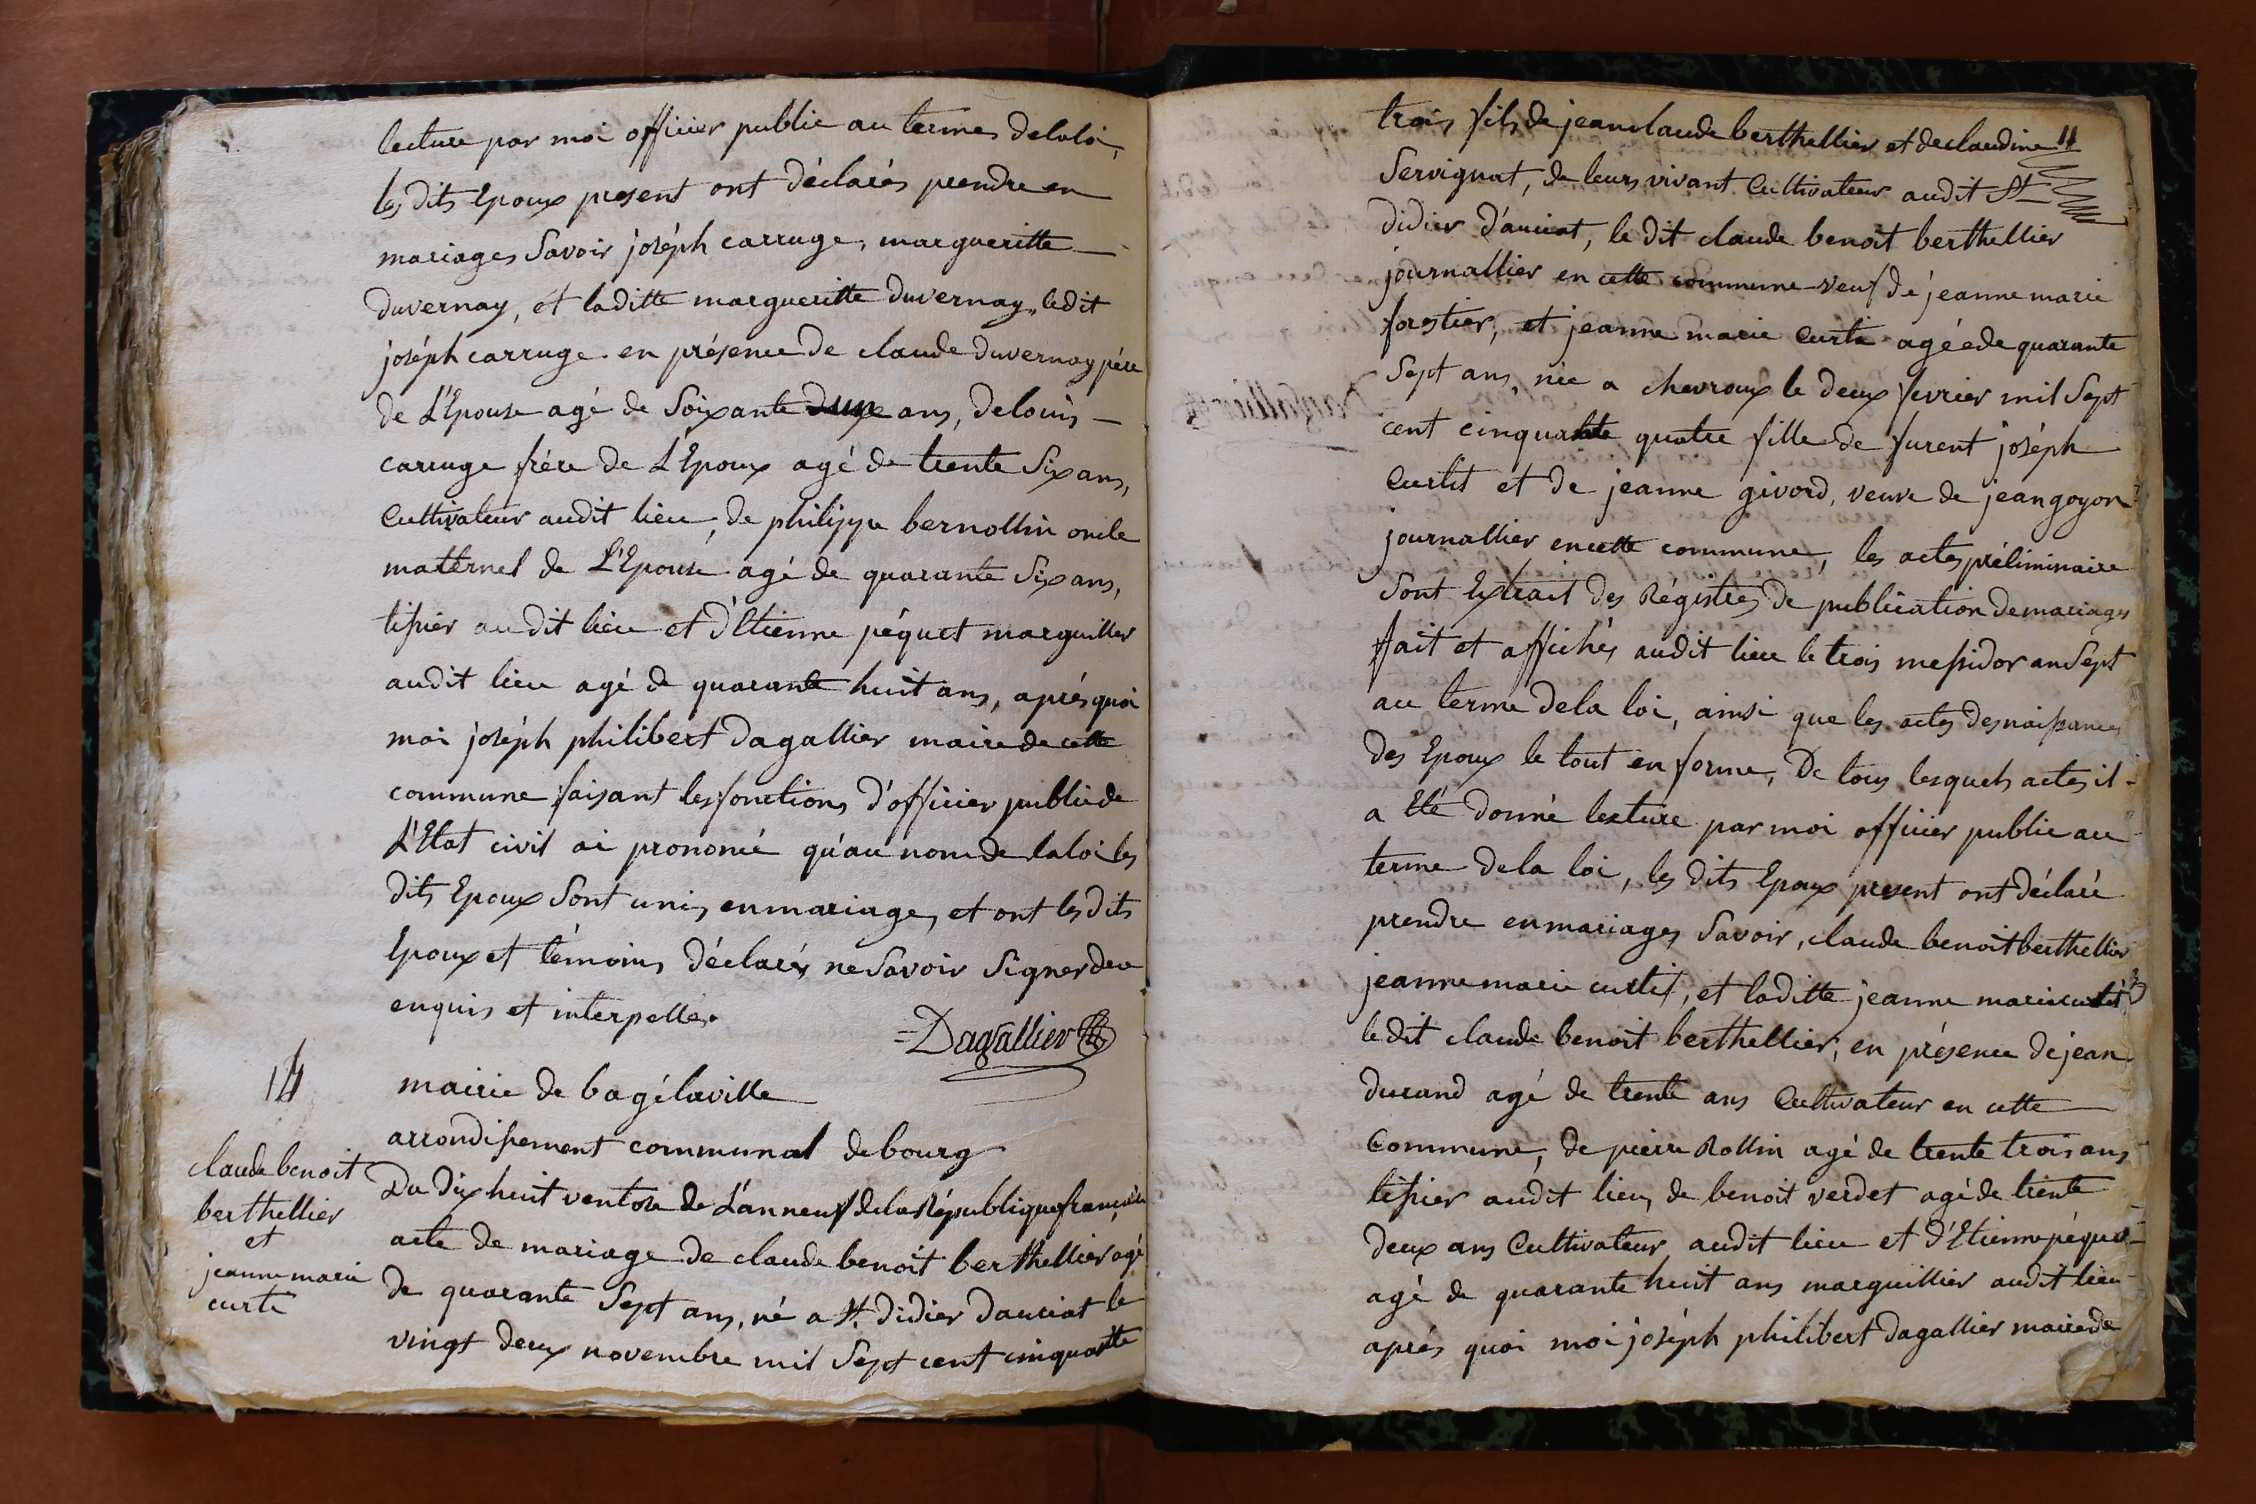 lecture par moi officier public au termes delaloi,
les dits Epoux present ont déclarés prendre en
mariages Savoir joséph carruge, margueritte
duvernay, et laditte margueritte duvernay, ledit
joséph carruge en présence de claude duvernay pére
de L'Epouse agé de Soixante ans, delouis
carruge frére de L'Epoux agé de trente Six ans,
Cultivateur audit lieu, de philippe bernollin oncle
maternel de L'Epouse agé de quarante Six ans,
tissier audit lieu et d'Etienne péquet marguiller
audit lieu agé de quarante huit ans, aprés quoi
moi joséph philibert dagallier maire de cette
commune faisant les fonctions d'officier public de
L'Etat civil ai prononcé qu'au nom de laloi les
dits Epoux Sont unis en mariages, et ont les dits
Epoux et témoins déclarés ne Savoir Signer de ce
enquis et interpellés.
=Dagallier
14
claude benoit
berthellier
et
jeanne marie
curti
mairie de bagélaville
arrondissement communal debourg
Du dix huit ventose de L'an neuf dela République française
acte de mariage de claude benoit berthellier agé
de quarante Sept ans, né a St. didier dauciat le
vingt deux novembre mil Sept cent cinquante
11
trois fils de jean claude berthellier et declaudine
Servignat, de leurs vivant Cultivateur audit St
didier d'auciat, le dit claude benoit berthellier
journallier en cette commune veuf de jeanne marie
forestier, et jeanne marie Curti agéede quarante
Sept ans, née a chevroux le deux fevrier mil Sept
cent cinquante quatre fille de furent joséph
Curtit et de jeanne givord, veuve de jean goyon
journallier encette commune, les actes préliminaire
Sont Extrait des Régistres de publication demariages
fait et affichés audit lieu le trois messidor an Sept
au terme dela loi, ainsi que les actes desnaissances
des Epoux le tout en forme, De tous lesquels actes il
a Eté donné lecture par moi officier public au
terme dela loi, les dits Epoux present ont déclaré
prendre enmariages Savoir, claude benoit berthellier
jeanne marie curtit, et laditte jeanne marie curtit
ledit claude benoit berthellier, en présence de jean
durand agé de trente ans Cultivateur en cette
Commune, de pierre Rollin agé de trente trois ans
tissier audit lieu, de benoit verdet agé de trente
deux ans Cultivateur audit lieu et d'Etienne péquet
agé de quarante huit ans marguillier audit lieu
aprés quoi moi joséph philibert dagallier maire de